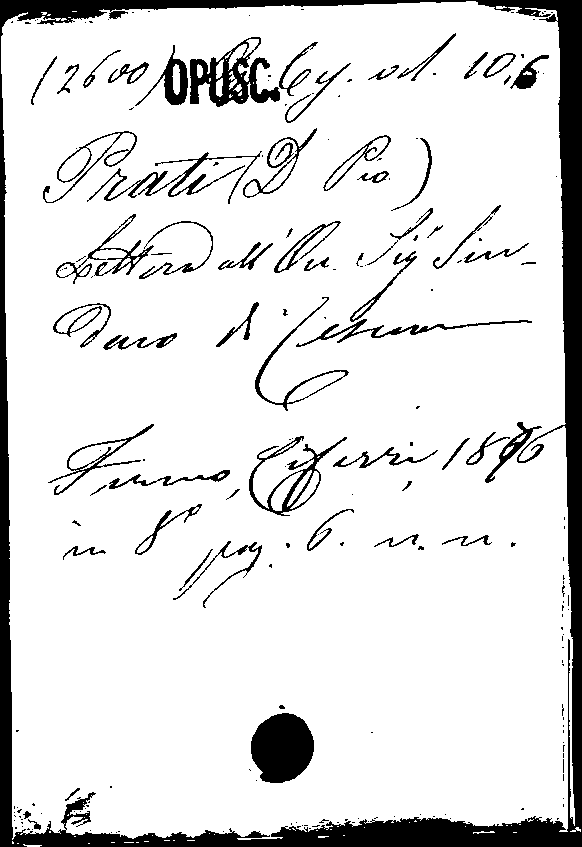 (2600) OPUSC. 10.6
Prati (D Pio)
Lettera all' On. Sigr Sin-
daco di Cesena
Fermo, Ciferri, 1876
in 8º pag. 6. n. n.